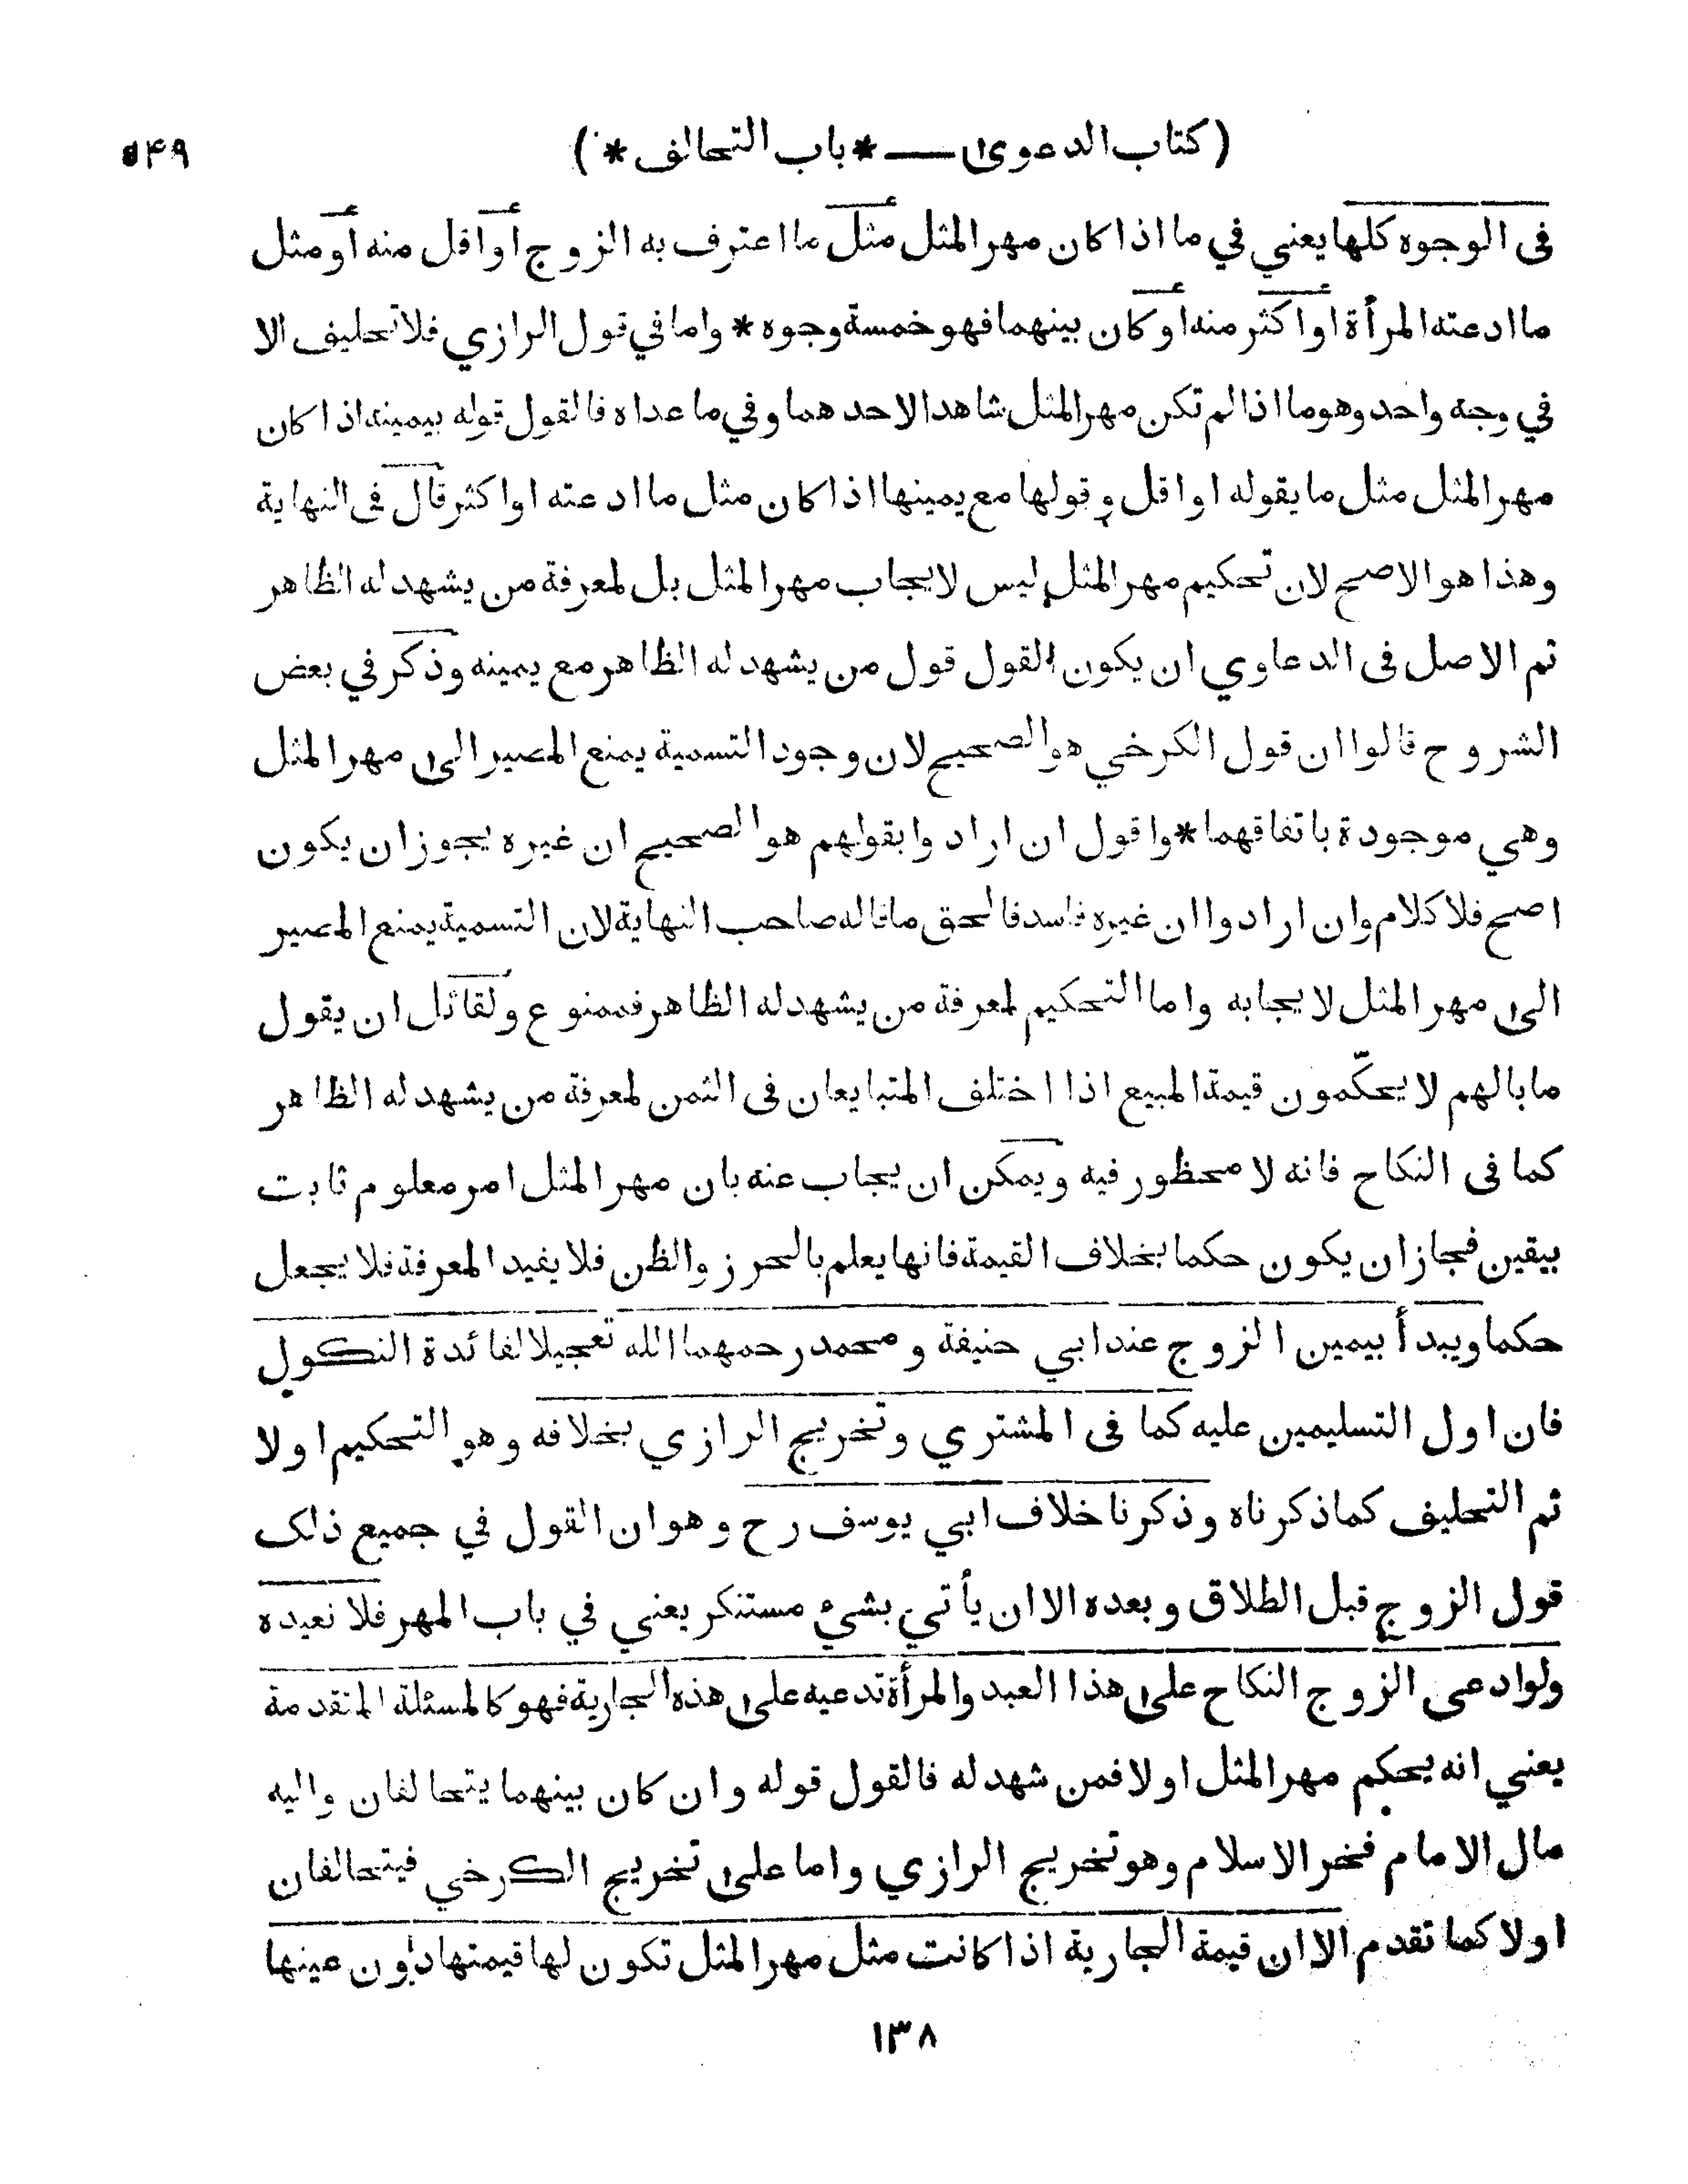 (كتاب الدعوى — * باب التحالف *) ٥٤٩
فى الوجوه كلها يعني في ما اذا كان مهر المثل مثل ما اعترف به الزوج أو اقل منه أو مثل
ما ادعته المرأة او اكثر منه او كان بينهما فهو خمسة وجوه * واما في قول الرازي فلا تحليف الا
في وجه واحد وهو ما اذا لم تكن مهر المثل شاهدا لاحدهما وفي ما عداه فالقول قوله بيمينه اذا كان
مهر المثل مثل ما يقوله او اقل وقولها مع يمينها اذا كان مثل ما ادعته او اكثر قال فى النهاية
وهذا هو الاصح لان تحكيم مهر المثل ليس لايجاب مهر المثل بل لمعرفة من يشهد له الظاهر
ثم الاصل فى الدعاوي ان يكون القول قول من يشهد له الظاهر مع يمينه وذكر في بعض
الشروح قالوا ان قول الكرخي هو الصحيح لان وجود التسمية يمنع المصير الى مهر المثل
وهي موجودة باتفاقهما * واقول ان ارادوا بقولهم هو الصحيح ان غيره يجوز ان يكون
اصح فلا كلام وان ارادوا ان غيره فاسد فالحق ما قاله صاحب النهاية لان التسمية يمنع المصير
الى مهر المثل لايجابه واما التحكيم لمعرفة من يشهد له الظاهر فممنوع ولقائل ان يقول
ما بالهم لا يحكّمون قيمة المبيع اذا اختلف المتبايعان فى الثمن لمعرفة من يشهد له الظاهر
كما فى النكاح فانه لا محظور فيه ويمكن ان يجاب عنه بان مهر المثل امر معلوم ثابت
بيقين فجاز ان يكون حكما بخلاف القيمة فانها يعلم بالحرز والظن فلا يفيد المعرفة فلا يجعل
حكما ويبدأ بيمين الزوج عند ابي حنيفة ومحمد رحمهما الله تعجيلا لفائدة النكول
فان اول التسليمين عليه كما فى المشتري وتخريج الرازي بخلافه وهو التحكيم اولا
ثم التحليف كما ذكرناه وذكرنا خلاف ابي يوسف رح وهو ان القول في جميع ذلك
قول الزوج قبل الطلاق وبعده الا ان يأتي بشيء مستنكر يعني في باب المهر فلا نعيده
ولو ادعى الزوج النكاح على هذا العبد والمرأة تدعيه على هذه الجارية فهو كالمسئلة المتقدمة
يعني انه يحكم مهر المثل اولا فمن شهد له فالقول قوله وان كان بينهما يتحالفان واليه
مال الامام فخر الاسلام وهو تخريج الرازي واما على تخريج الكرخي فيتحالفان
اولا كما تقدم الا ان قيمة الجارية اذا كانت مثل مهر المثل تكون لها قيمتها دون عينها
١٣٨